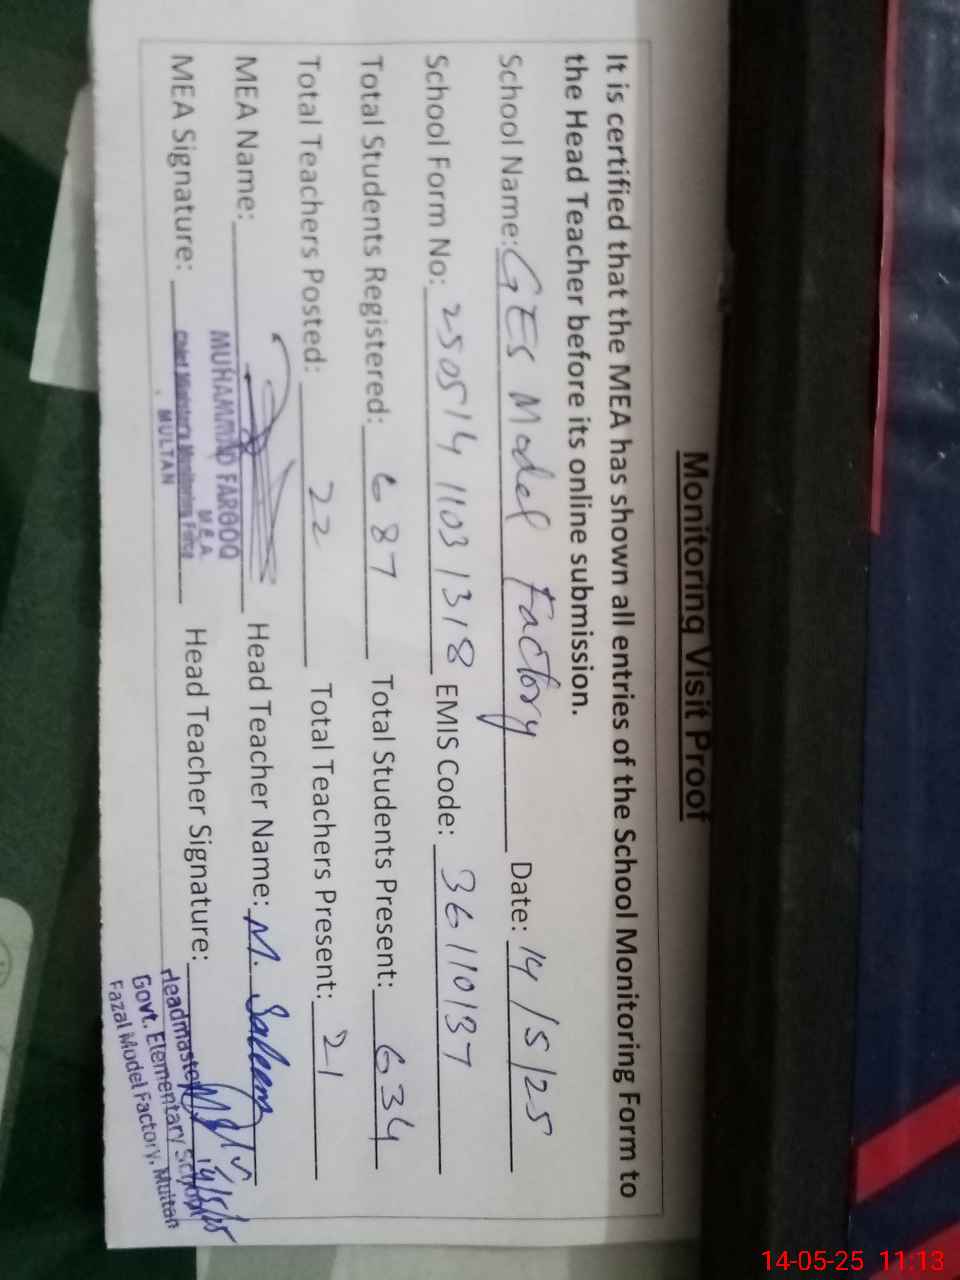 Monitoring Visit Proof
It is certified that the MEA has shown all entries of the School Monitoring Form to
the Head Teacher before its online submission.
School Name: GES Model Factory Date: 14/5/25
School Form No: 250514 1103 1318 EMIS Code: 36110137
Total Students Registered: 687 Total Students Present: 634
Total Teachers Posted: 22 Total Teachers Present: 21
MEA Name: Head Teacher Name: M. Saleem
MUHAMMAD FAROOQ
M.E.A
MEA Signature: Head Teacher Signature:
Chief Minister's Monitoring Force
MULTAN
Headmaster 14/5/25
Govt. Elementary School
Fazal Model Factory, Multan
14-05-25 11:13